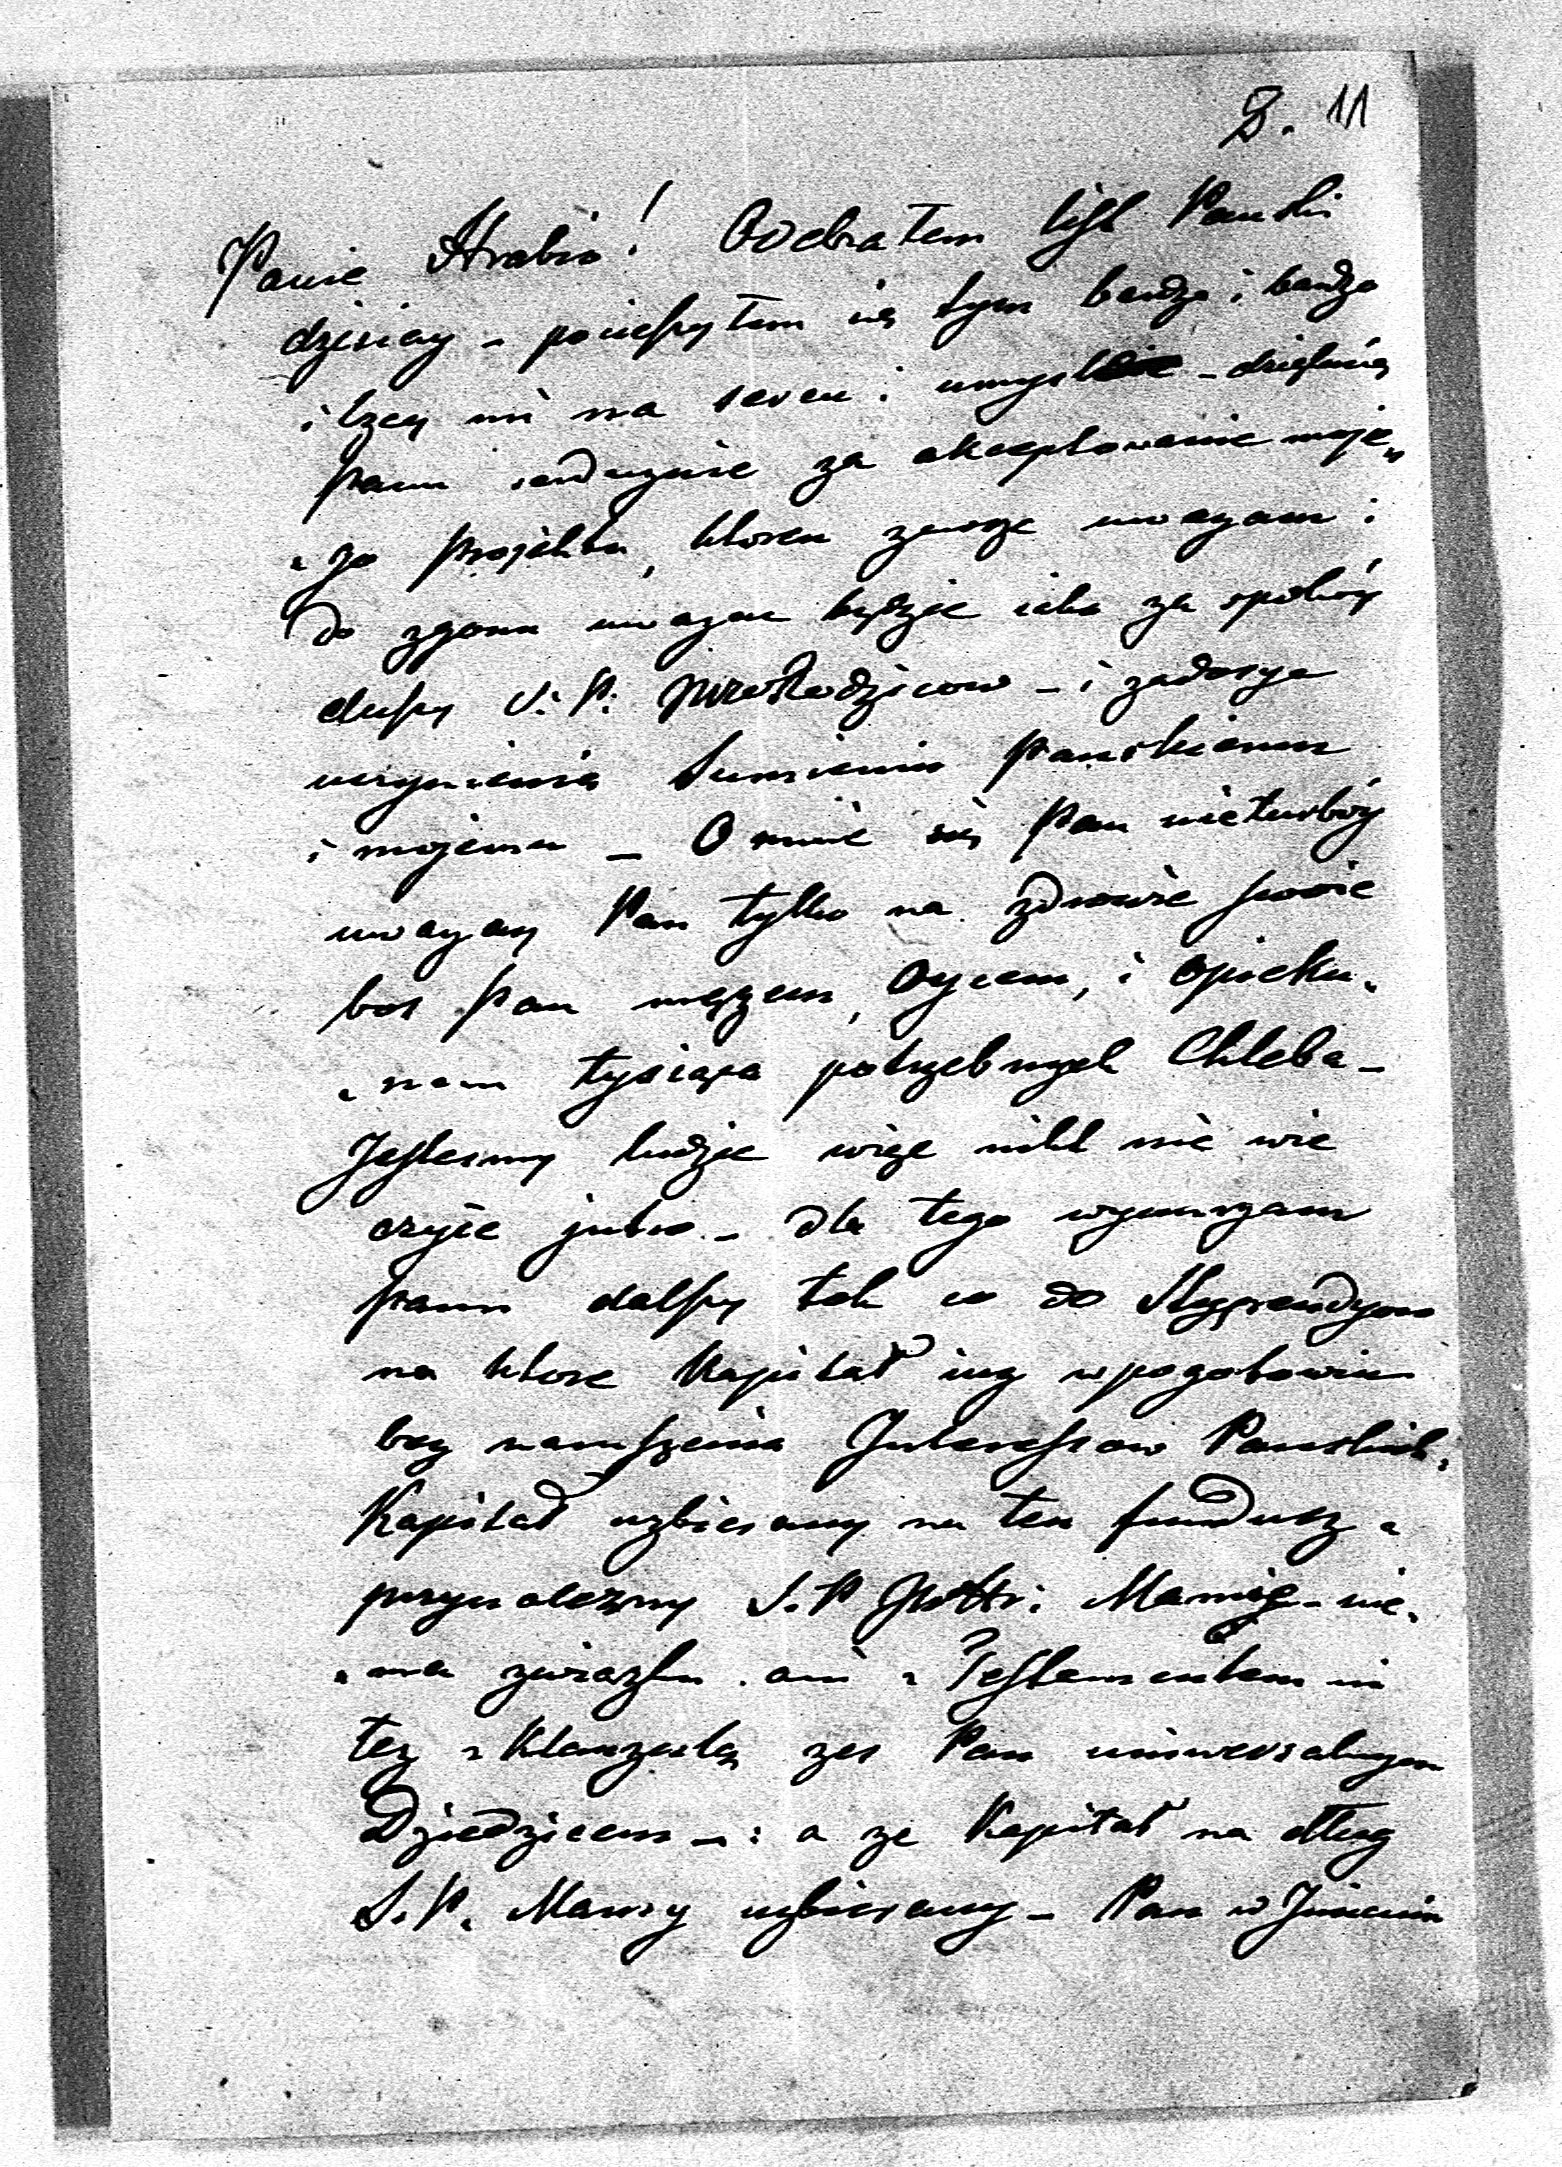 8. 11
Panie Hrabio! Odebrałem list Panski
dzisiay – pocieszyłem się tym bardzo i bardzo
i lzey mi na sercu i umysle – dziękuię
Panu serdecznie za akceptowanie moje„
„go projektu, ktoren zawsze uwazam i
do zgonu uwazac będzie za spokóy
duszy S: P: – i zadosyc
uczynienia Sumieniu Panskiemu
i mojemu – O mnie się Pan nieturbóy
uwazay Pan tylko na zdrowie swoie
bos Pan męzem, Oycem, i Opieku„
„nem tysiąca potrzebnych Chleba –
Jestesmy ludzie więc nikt nie wie
czyie jutro – dla tego wymszam
Panu dalszy tok co do Stypendyow
na ktore Kapitał iuz w pogotowiu
bez naruszenia Interessow Panskich.
Kapitał uzbierany na ten fundusz a
przynalezny S. P. Hr: Maniże – nie„
„ma związku ani z Testamentem ni
tez z Klauzulą zes Pan uniwersalnym
Dziedzicem – : a ze Kapitał na dług
S. P. uzbierany – Pan w Imieniu